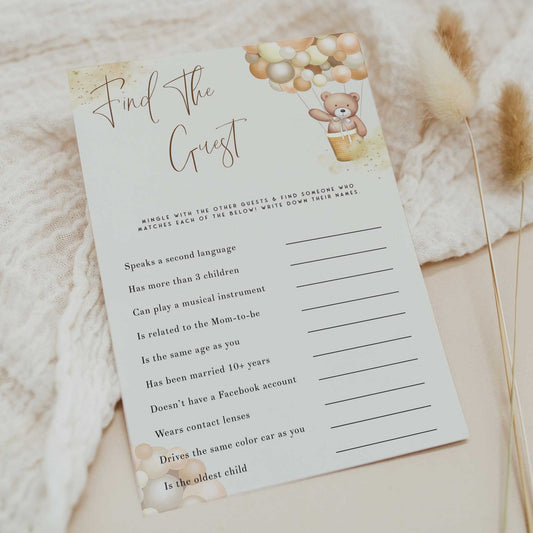 Find The
Guest
MINGLE WITH THE OTHER GUESTS & FIND SOMEONE WHO
MATCHES EACH OF THE BELOW! WRITE DOWN THEIR NAMES
Speaks a second language
Has more than 3 children
Can play a musical instrument
Is related to the Mom-to-be
Is the same age as you
Has been married 10+ years
Doesn't have a Facebook account
Wears contact lenses
Drives the same color car as you
Is the oldest child